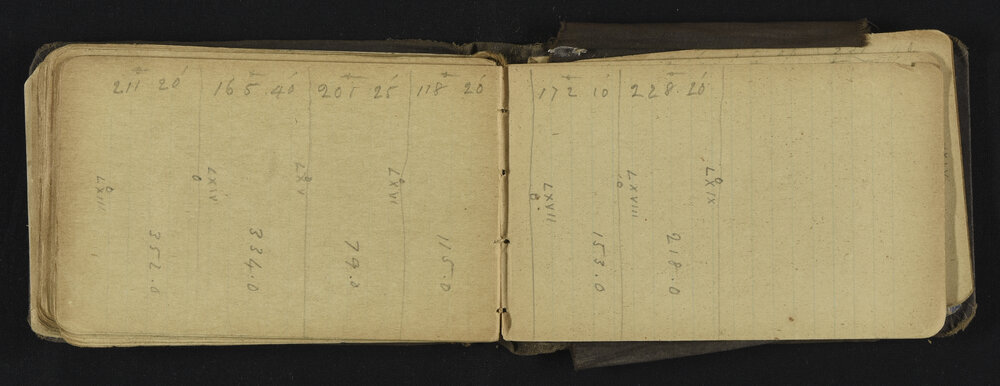 211 20'
165 40'
201 25'
118 20'
172 10'
228 20'
LXIII
LXIV
LXV
LXVI
LXVII
LXVIII
LXIX
352.0
334.0
79.0
115.0
153.0
218.0